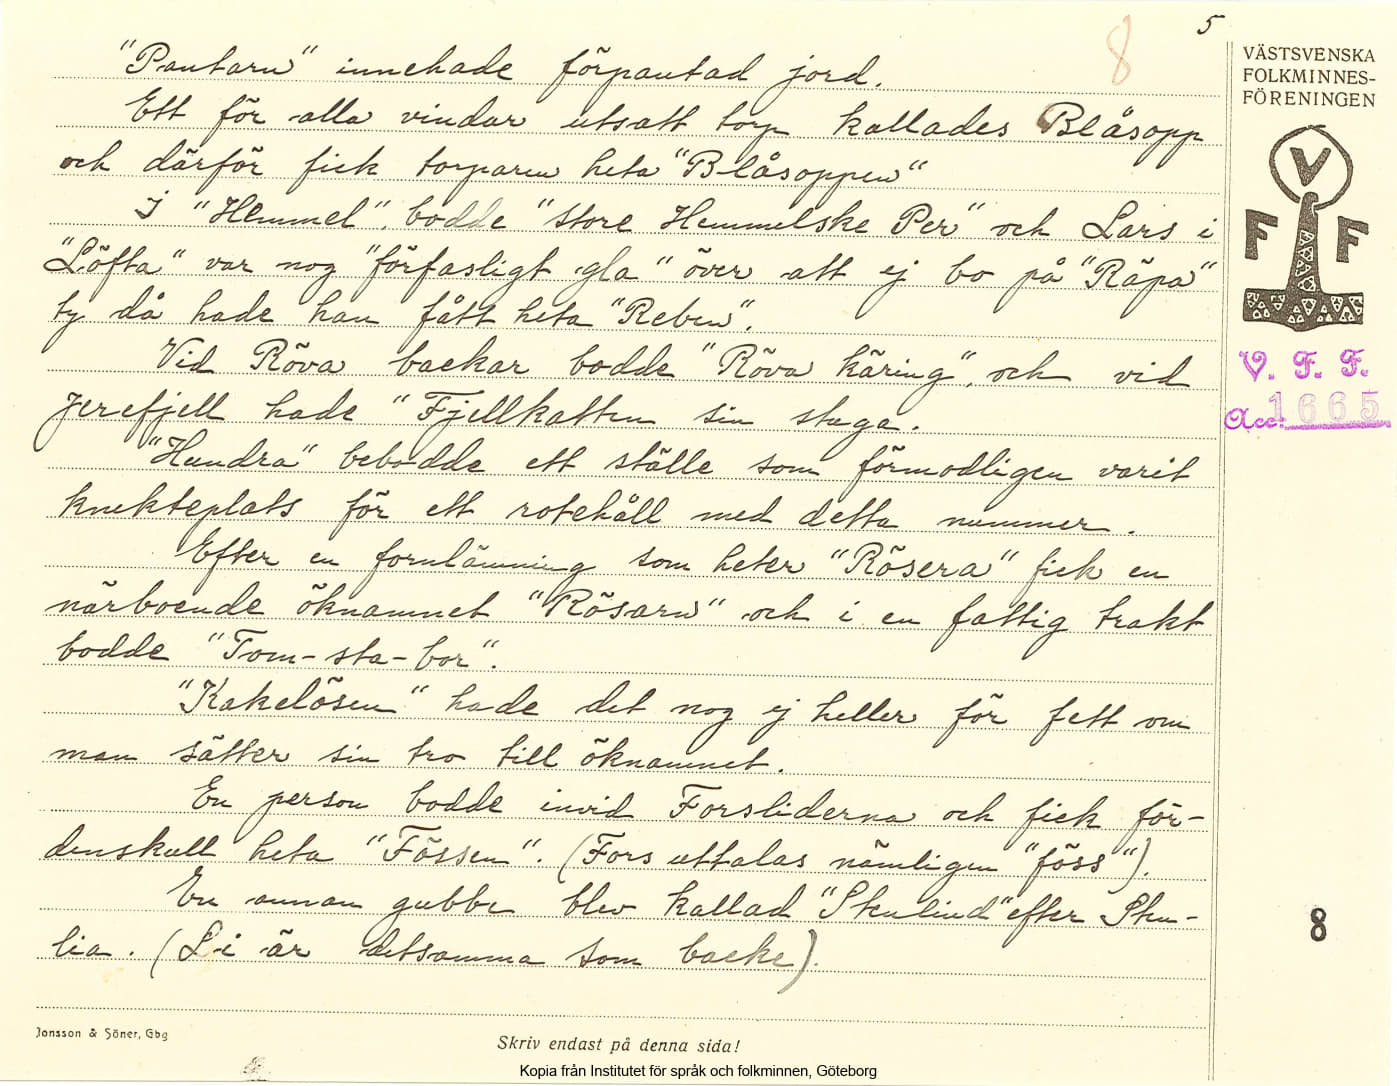 5
8
"Pantarn" innehade förpantad jord.
Ett för alla vindar utsatt torp kallades Blåsopp
och därför fick torparen heta "Blåsoppen"
I "Hemmel" bodde "Store Hemmelske Per" och Lars i
"Löfta" var nog "förfasligt gla" över att ej bo på "Räpa"
ty då hade han fått heta "Reben".
Vid Röva backar bodde "Röva käring", och vid
Jerefjell hade "Fjellkatten sin stuga.
"Hundra" bebodde ett ställe som förmodligen varit
knekteplats för ett rotehåll med detta nummer.
Efter en fornlämning som heter "Rösera" fick en
närboende öknamnet "Rösarn" och i en fattig trakt
bodde "Tom-sta-bor".
"Kakelösen" hade det nog ej heller för fett om
man sätter sin tro till öknamnet.
En person bodde invid Forsliderna och fick för-
denskull heta "Fössen". (Fors uttalas nämligen "föss").
En annan gubbe blev kallad "Skulind" efter Sku-
lia. (Li är detsamma som backe).
VÄSTSVENSKA
FOLKMINNES-
FÖRENINGEN
V
F F
V. F. F.
Acc. 1665
8
Jonsson & Söner, Gbg
Skriv endast på denna sida!
Kopia från Institutet för språk och folkminnen, Göteborg